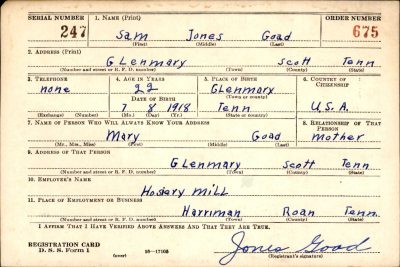 SERIAL NUMBER 1. NAME (Print) ORDER NUMBER
247 Sam Jones Goad 675
(First) (Middle) (Last)
2. ADDRESS (Print)
GLenmary Scott Tenn
(Number and street or R. F. D. number) (Town) (County) (State)
3. TELEPHONE 4. AGE IN YEARS 5. PLACE OF BIRTH 6. COUNTRY OF CITIZENSHIP
none 22 GLenmary
DATE OF BIRTH (Town or county)
7 8 1918 Tenn U.S.A.
(Exchange) (Number) (Mo.) (Day) (Yr.) (State or country)
7. NAME OF PERSON WHO WILL ALWAYS KNOW YOUR ADDRESS 8. RELATIONSHIP OF THAT PERSON
Mary Goad mother
(Mr., Mrs., Miss) (First) (Middle) (Last)
9. ADDRESS OF THAT PERSON
GLenmary Scott Tenn
(Number and street or R. F. D. number) (Town) (County) (State)
10. EMPLOYER'S NAME
Hosary mill
11. PLACE OF EMPLOYMENT OR BUSINESS
Harriman Roan Tenn.
(Number and street or R. F. D. number) (Town) (County) (State)
I AFFIRM THAT I HAVE VERIFIED ABOVE ANSWERS AND THAT THEY ARE TRUE.
REGISTRATION CARD
D. S. S. Form 1 (over) 16—17105 Jones Goad
(Registrant's signature)